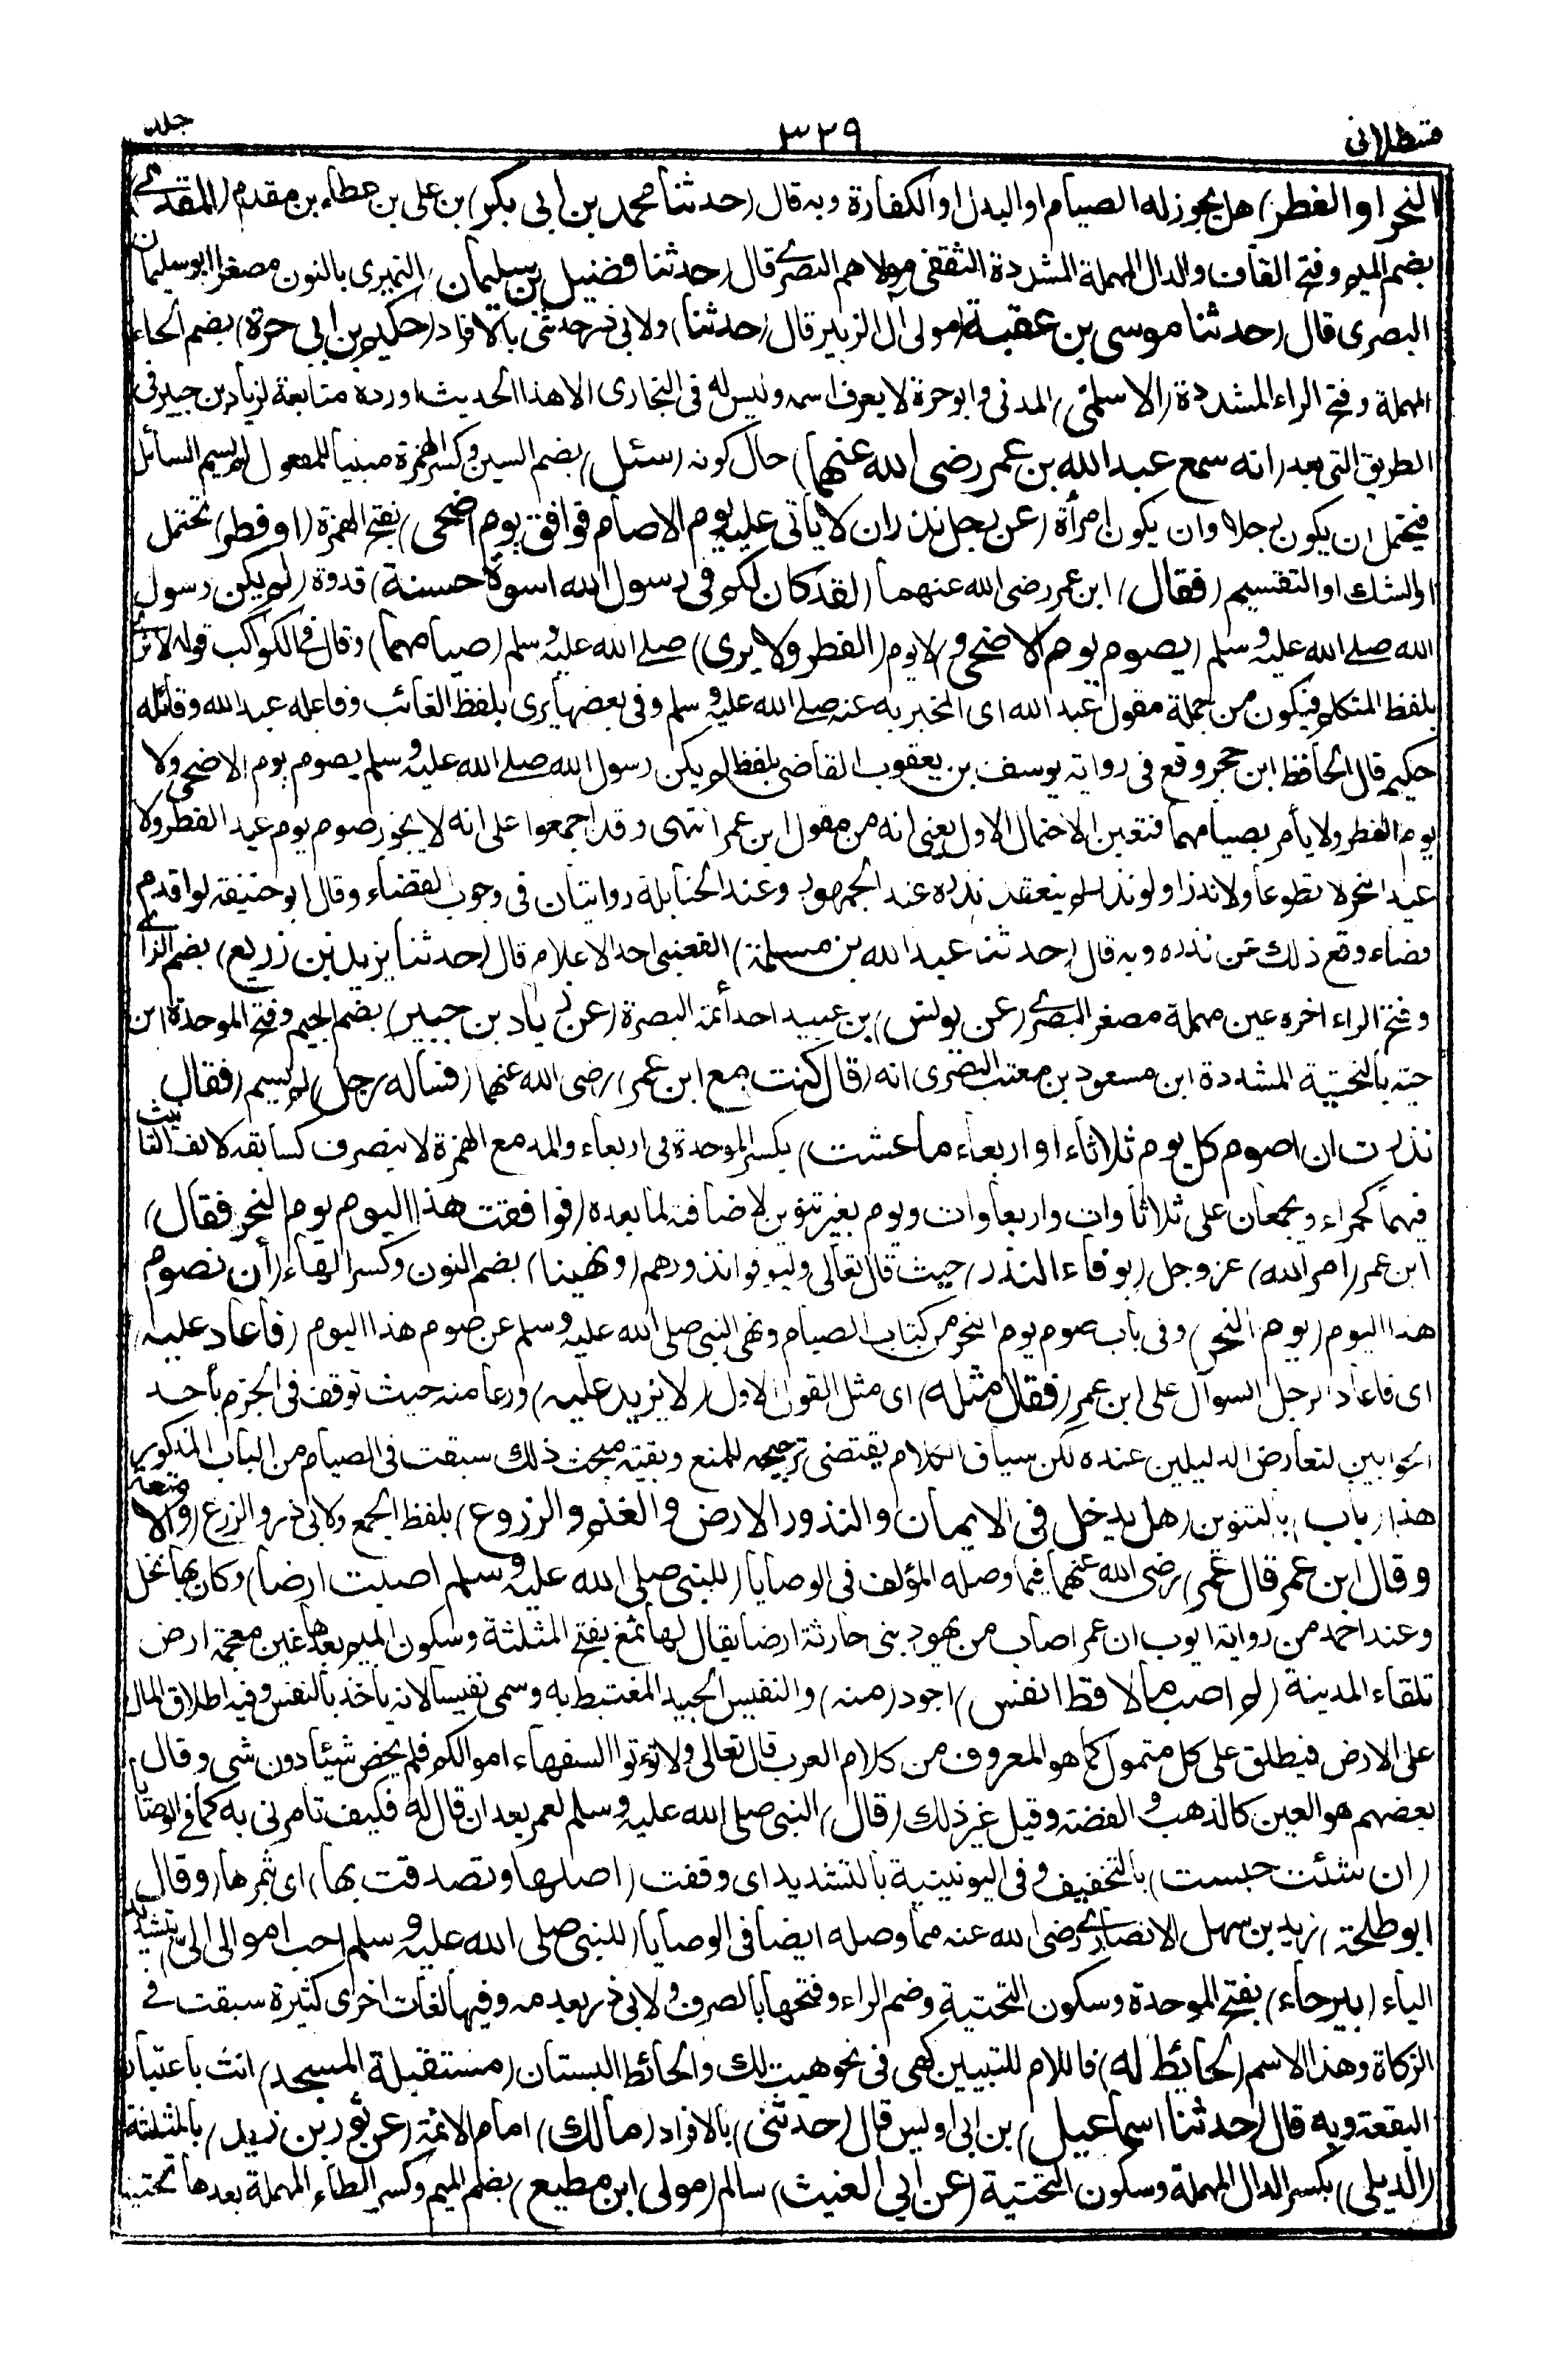 قسطلانى ٣٣٩ جلد
النحر او الفطر) هل يجوز له الصيام او البدل او الكفارة وبه قال (حدثنا محمد بن ابى بكر) بن على بن عطاء بن مقدم (المقدمى)
بضم الميم وفتح القاف والدال المهملة المشددة الثقفى مولاهم البصرى قال (حدثنا فضيل بن سليمان) النميرى بالنون مصغرا ابو سليمان
البصرى قال (حدثنا موسى بن عقبة) مولى آل الزبير قال (حدثنا) ولابى ذر حدثنى بالافراد (حكيم بن ابى حرة) بضم الحاء
المهملة وفتح الراء المشددة (الاسلمى) المدنى وابو حرة لا يعرف اسمه وليس له فى البخارى الا هذا الحديث اورده متابعة لزياد بن جبير فى
الطريق التى بعد (انه سمع عبد الله بن عمر رضى الله عنهما) حال كونه (سئل) بضم السين وكسر الهمزة مبنيا للمفعول لم يسم السائل
فيحتمل ان يكون رجلا وان يكون امرأة (عن رجل نذر ان لا يأتى عليه يوم الا صام فوافق يوم اضحى) بفتح الهمزة (او فطر) تحتمل
او الشك او التقسيم (فقال) ابن عمر رضى الله عنهما (لقد كان لكم فى رسول الله اسوة حسنة) قدوة (لم يكن رسول
الله صلى الله عليه وسلم (يصوم يوم الاضحى و) لا يوم (الفطر ولا يرى) صلى الله عليه وسلم (صيامهما) وقال فى الكواكب قوله لا نرى
بلفظ المتكلم فيكون من جملة مقول عبد الله اى المخبر به عنه صلى الله عليه وسلم وفى بعضها يرى بلفظ الغائب وفاعله عبد الله وقائله
حكيم قال الحافظ ابن حجر وقع فى رواية يوسف بن يعقوب القاضى بلفظ لم يكن رسول الله صلى الله عليه وسلم يصوم يوم الاضحى ولا
يوم الفطر ولا يأمر بصيامهما فتعين الاحتمال الاول يعنى انه من مقول ابن عمر انتهى وقد اجمعوا على انه لا يجوز صوم يوم عيد الفطر ولا
عيد النحر لا تطوعا ولا نذرا ولو نذر لم ينعقد نذره عند الجمهور وعند الحنابلة روايتان فى وجوب القضاء وقال ابو حنيفة لو اقدم
فصام وقع ذلك عن نذره وبه قال (حدثنا عبد الله بن مسلمة) القعنبى احد الاعلام قال (حدثنا يزيد بن زريع) بضم الزاى
وفتح الراء اخره عين مهملة مصغر البصرى (عن يونس) بن عبيد احد ائمة البصرة (عن زياد بن جبير) بضم الجيم وفتح الموحدة ابن
حية بالتحتية المشددة ابن مسعود بن معتب البصرى انه (قال كنت مع ابن عمر) رضى الله عنهما (فساله رجل) لم يسم (فقال
نذرت ان اصوم كل يوم ثلاثاء او اربعاء ما عشت) بكسر الموحدة فى اربعاء والمد مع الهمزة لا ينصرف كسابقه لالف التانيث
فيهما كحمراء ويجمعان على ثلاثاوات واربعاوات ويوم بغير تنوين لاضافته لما بعده (فوافقت هذا اليوم يوم النحر فقال)
ابن عمر (امر الله) عز وجل (بوفاء النذر) حيث قال تعالى وليوفوا نذورهم (ونهينا) بضم النون وكسر الهاء (أن نصوم
هذا اليوم (يوم النحر) وفى باب صوم يوم النحر من كتاب الصيام ونهى النبى صلى الله عليه وسلم عن صوم هذا اليوم (فاعاد عليه)
اى فاعاد الرجل السوال على ابن عمر (فقال مثله) اى مثل القول الاول (لا يزيد عليه) ورعا منه حيث توقف فى الجزم بأحد
الجوابين لتعارض الدليلين عنده لكن سياق الكلام يقتضى ترجيحه للمنع وبقية مبحث ذلك سبقت فى الصيام من الباب المذكور
هذا (باب) بالتنوين (هل يدخل فى الايمان والنذور الارض والغنم والزروع) بلفظ الجمع ولابى ذر والزرع (والامتعة
وقال ابن عمر قال عمر) رضى الله عنهما فيما وصله المؤلف فى الوصايا (للنبى صلى الله عليه وسلم اصبت ارضا) وكان بها نخل
وعند احمد من رواية ايوب ان عمر اصاب من يهود بنى حارثة ارضا يقال لها ثمغ بفتح المثلثة وسكون الميم بعدها غين معجمة ارض
تلقاء المدينة (لم اصب مالا قط انفس) اجود (منه) والنفيس الجيد المغتبط به وسمى نفيسا لانه ياخذ بالنفس وفيه اطلاق المال
على الارض فيطلق على كل متمول كما هو المعروف من كلام العرب قال تعالى ولا تؤتوا السفهاء اموالكم فلم يخص شيئا دون شى وقال
بعضهم هو العين كالذهب والفضة وقيل غير ذلك (قال) النبى صلى الله عليه وسلم لعمر بعد ان قال له فكيف تامرنى به كما فى الوصايا
(ان شئت حبست) بالتخفيف وفى اليونينية بالتشديد اى وقفت (اصلها وتصدقت بها) اى ثمرها (وقال
ابو طلحة) زيد بن سهل الانصارى رضى الله عنه مما وصله ايضا فى الوصايا (للنبى صلى الله عليه وسلم احب اموالى الى) بتشديد
الياء (بيرحاء) بفتح الموحدة وسكون التحتية وضم الراء وفتحها بالصرف ولابى ذر بعدمه وفيها لغات اخرى كثيرة سبقت فى
الزكاة وهذا الاسم (لحائط له) فاللام للتبيين كهى فى نحو هيت لك والحائط البستان (مستقبلة المسجد) انث باعتبار
البقعة وبه قال (حدثنا اسماعيل) بن ابى اويس قال (حدثنى) بالافراد (مالك) امام الائمة (عن ثور بن زيد) بالمثلثة
(الديلى) بكسر الدال المهملة وسكون التحتية (عن ابى الغيث) سالم (مولى ابن مطيع) بضم الميم وكسر الطاء المهملة بعدها تحتية